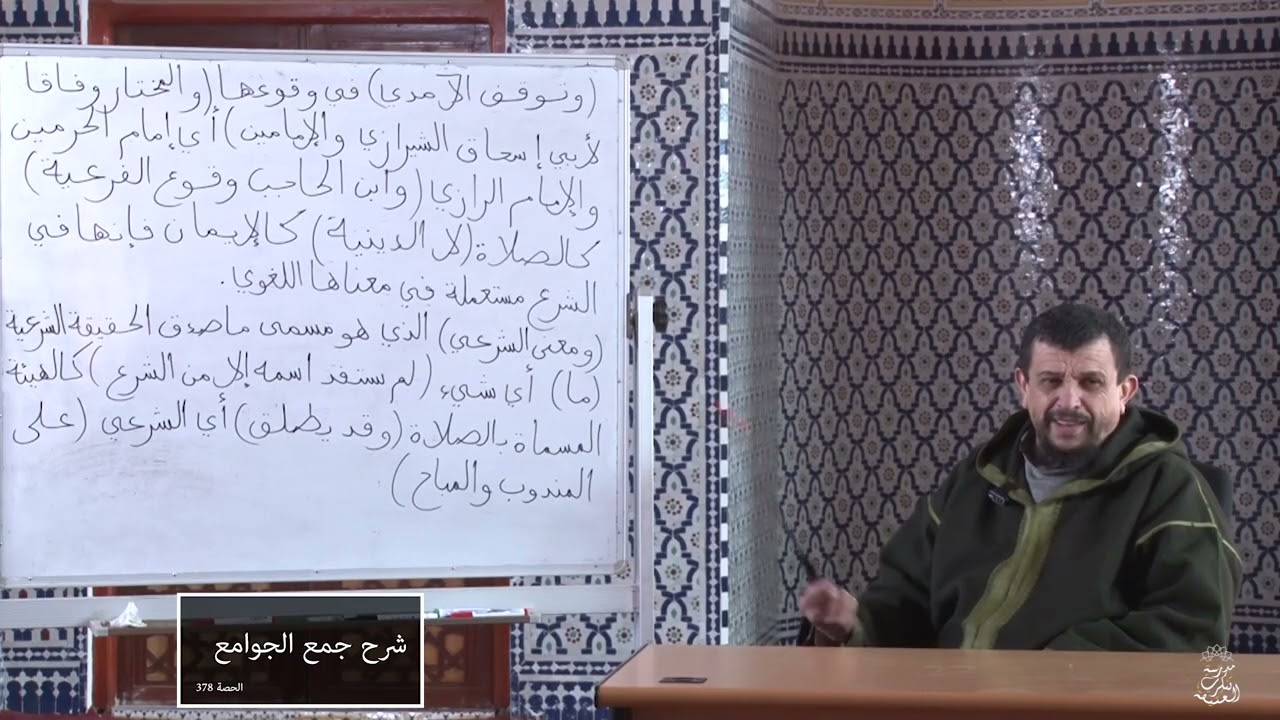 (وتوقف الآمدي) في وقوعها (والمختار وفاقا
لأبي إسحاق الشيرازي والإمامين) أي إمام الحرمين
والإمام الرازي (وابن الحاجب وقوع الفرعية)
كالصلاة (لا الدينية) كالإيمان فإنها في
الشرع مستعملة في معناها اللغوي.
(ومعنى الشرعي) الذي هو مسمى ماصدق الحقيقة الشرعية
(ما) أي شيء (لم يستفد اسمه إلا من الشرع) كالهيئة
المسماة بالصلاة (وقد يطلق) أي الشرعي (على
المندوب والمباح)
شرح جمع الجوامع
الحصة 378
مدرسة
العتيقة